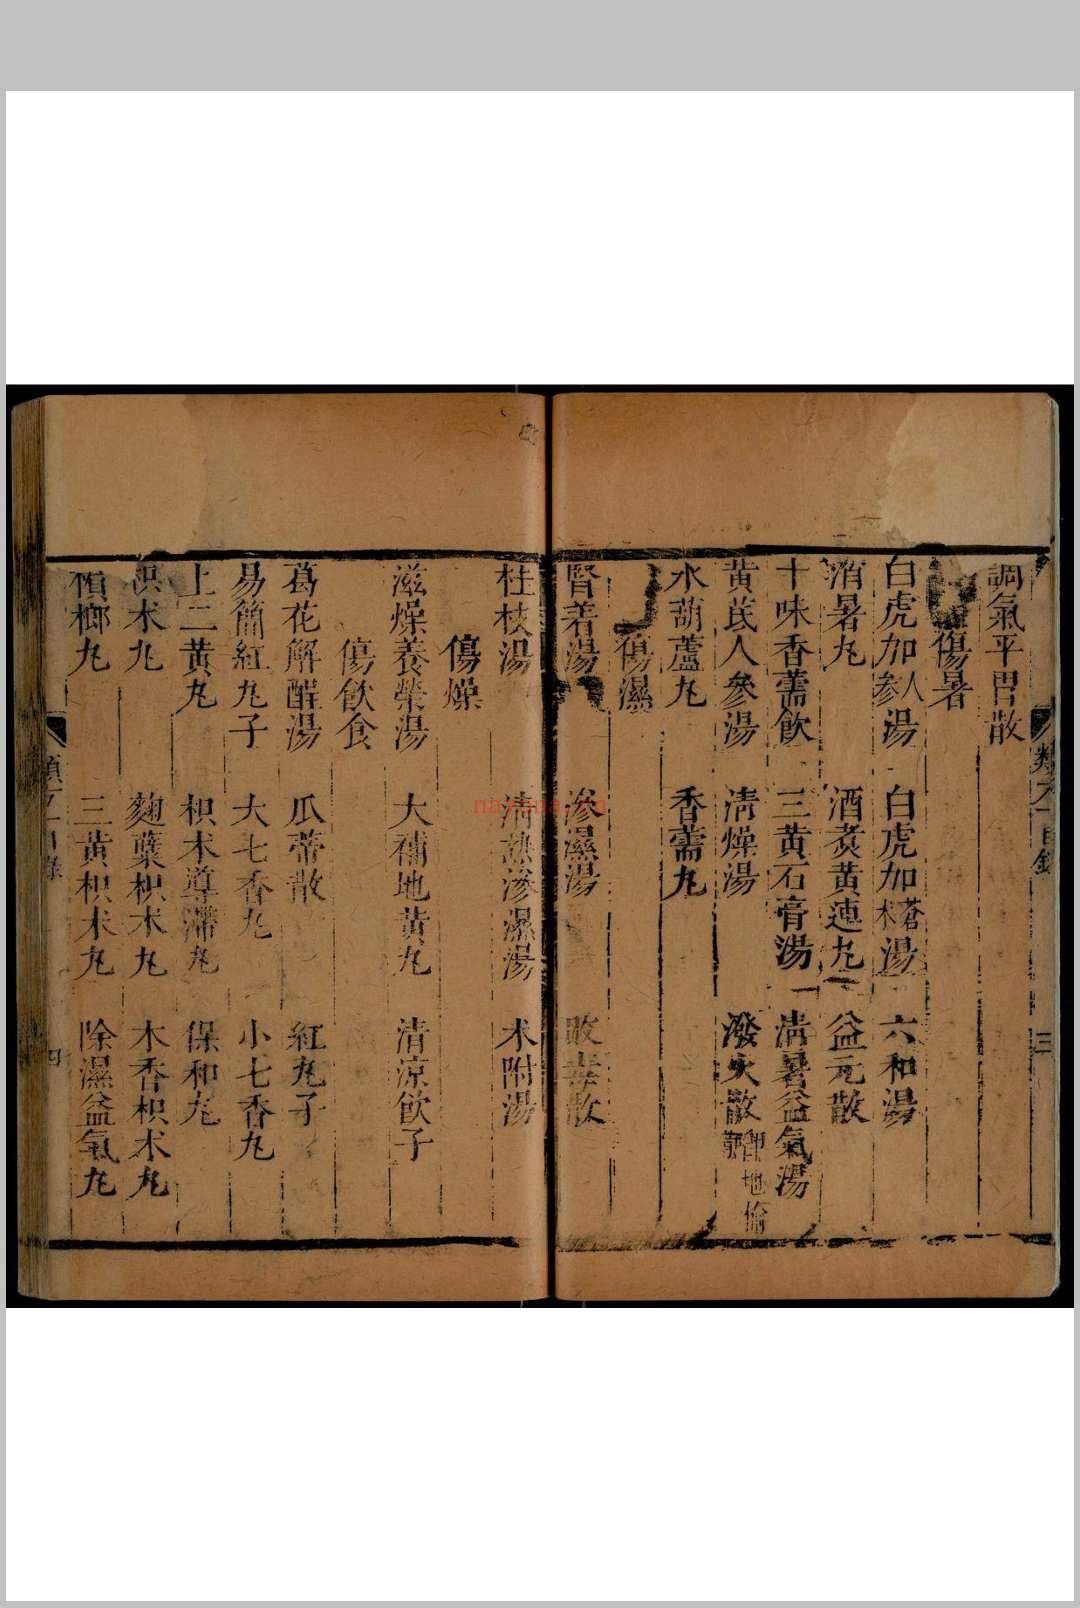 調氣平胃散
傷暑
白虎加人參湯　白虎加蒼朮湯　六和湯
消暑丸　酒煑黃連丸　益元散
十味香薷飲　三黃石膏湯　清暑益氣湯
黃芪人參湯　清燥湯　潑火散 即地榆
水葫蘆丸　香薷丸
傷濕
腎着湯　滲濕湯　敗毒散
桂枝湯　清熱滲濕湯　朮附湯
傷燥
滋燥養榮湯　大補地黃丸　清涼飲子
傷飲食
葛花解酲湯　瓜蒂散　紅丸子
易簡紅丸子　大七香丸　小七香丸
上二黃丸　枳朮導滯丸　保和丸
枳朮丸　麴糵枳朮丸　木香枳朮丸
檳榔丸　三黃枳朮丸　除濕益氣丸
目錄
三
四
nayona.cn